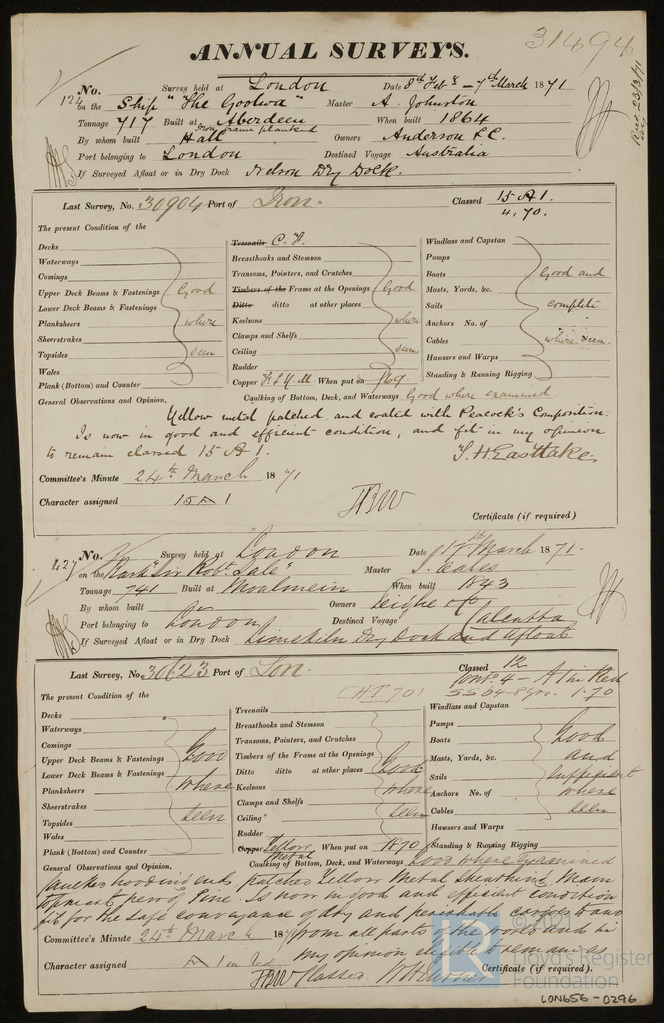 31494
ANNUAL SURVEYS.
Rec. 23/3/71
124 No. Survey held at London Date 8th Feby – 7th March 1871
on the Ship "The Goolwa" Master A. Johnston
Tonnage 717 Built at Aberdeen When built 1864
Iron frame planked
By whom built Hall Owners Anderson & C.
Port belonging to London Destined Voyage Australia
If Surveyed Afloat or in Dry Dock Nelson Dry Dock.
Last Survey, No. 30904 Port of Lon. Classed 15 A 1.
4.70.
The present Condition of the
Decks
Waterways
Comings
Upper Deck Beams & Fastenings Good
Lower Deck Beams & Fastenings
Planksheers where
Sheerstrakes
Topsides seen
Wales
Plank (Bottom) and Counter
Treenails C. F.
Breasthooks and Stemson
Transoms, Pointers, and Crutches
Timbers of the Frame at the Openings Good
Ditto ditto at other places
Keelsons where
Clamps and Shelfs
Ceiling seen
Rudder
Copper F & Y. M When put on /69
Windlass and Capstan
Pumps
Boats Good and
Masts, Yards, &c.
Sails complete
Anchors No. of
Cables where seen
Hausers and Warps
Standing & Running Rigging
General Observations and Opinion, Caulking of Bottom, Deck, and Waterways Good where examined
Yellow metal patched and coated with Peacock's Composition.
Is now in good and efficient condition, and fit in my opinion
to remain classed 15 A 1. T. H Eastlake.
Committee's Minute 24th March 1871
Character assigned 15 A 1
Certificate (if required)
427 No. Survey held at London Date 17th March 1871-
on the Bark "Sir Robt. Sale" Master
Tonnage 741 Built at Moulmein When built 1843
By whom built Owners
Port belonging to London Destined Voyage Calcutta
If Surveyed Afloat or in Dry Dock Limekiln Dry Dock and Afloat
Last Survey, No. 30623 Port of Lon. Classed 12
Cont. 4 – A in Red
SS 64-8yrs. 1.70
The present Condition of the
Decks
Waterways
Comings
Upper Deck Beams & Fastenings Good
Lower Deck Beams & Fastenings
Planksheers where
Sheerstrakes
Topsides seen
Wales
Plank (Bottom) and Counter
Treenails
Breasthooks and Stemson
Transoms, Pointers, and Crutches
Timbers of the Frame at the Openings
Ditto ditto at other places Good
Keelsons where
Clamps and Shelfs
Ceiling seen
Rudder
Copper Yellow Metal When put on 1870
Windlass and Capstan
Pumps
Boats Good
Masts, Yards, &c. and
Sails sufficient
Anchors No. of where
Cables seen
Hausers and Warps
Standing & Running Rigging
General Observations and Opinion, Caulking of Bottom, Deck, and Waterways Good where examined
Caulked hooding ends patched Yellow Metal Sheathing. Main
topmast Pine. Is now in good and efficient condition
fit for the safe conveyance of dry and perishable cargoes to and
from all parts of the world and in
my opinion eligible to remain as
Classed.
Committee's Minute 24th March 187
Character assigned A 1 in Red
Certificate (if required).
© 2021
Lloyd's Register
Foundation
LON656-0296